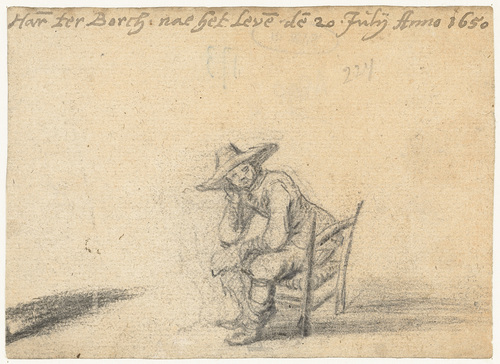 Har̄ ter Borch: nae het Levē. dē 20 Julÿ Anno 1650
221